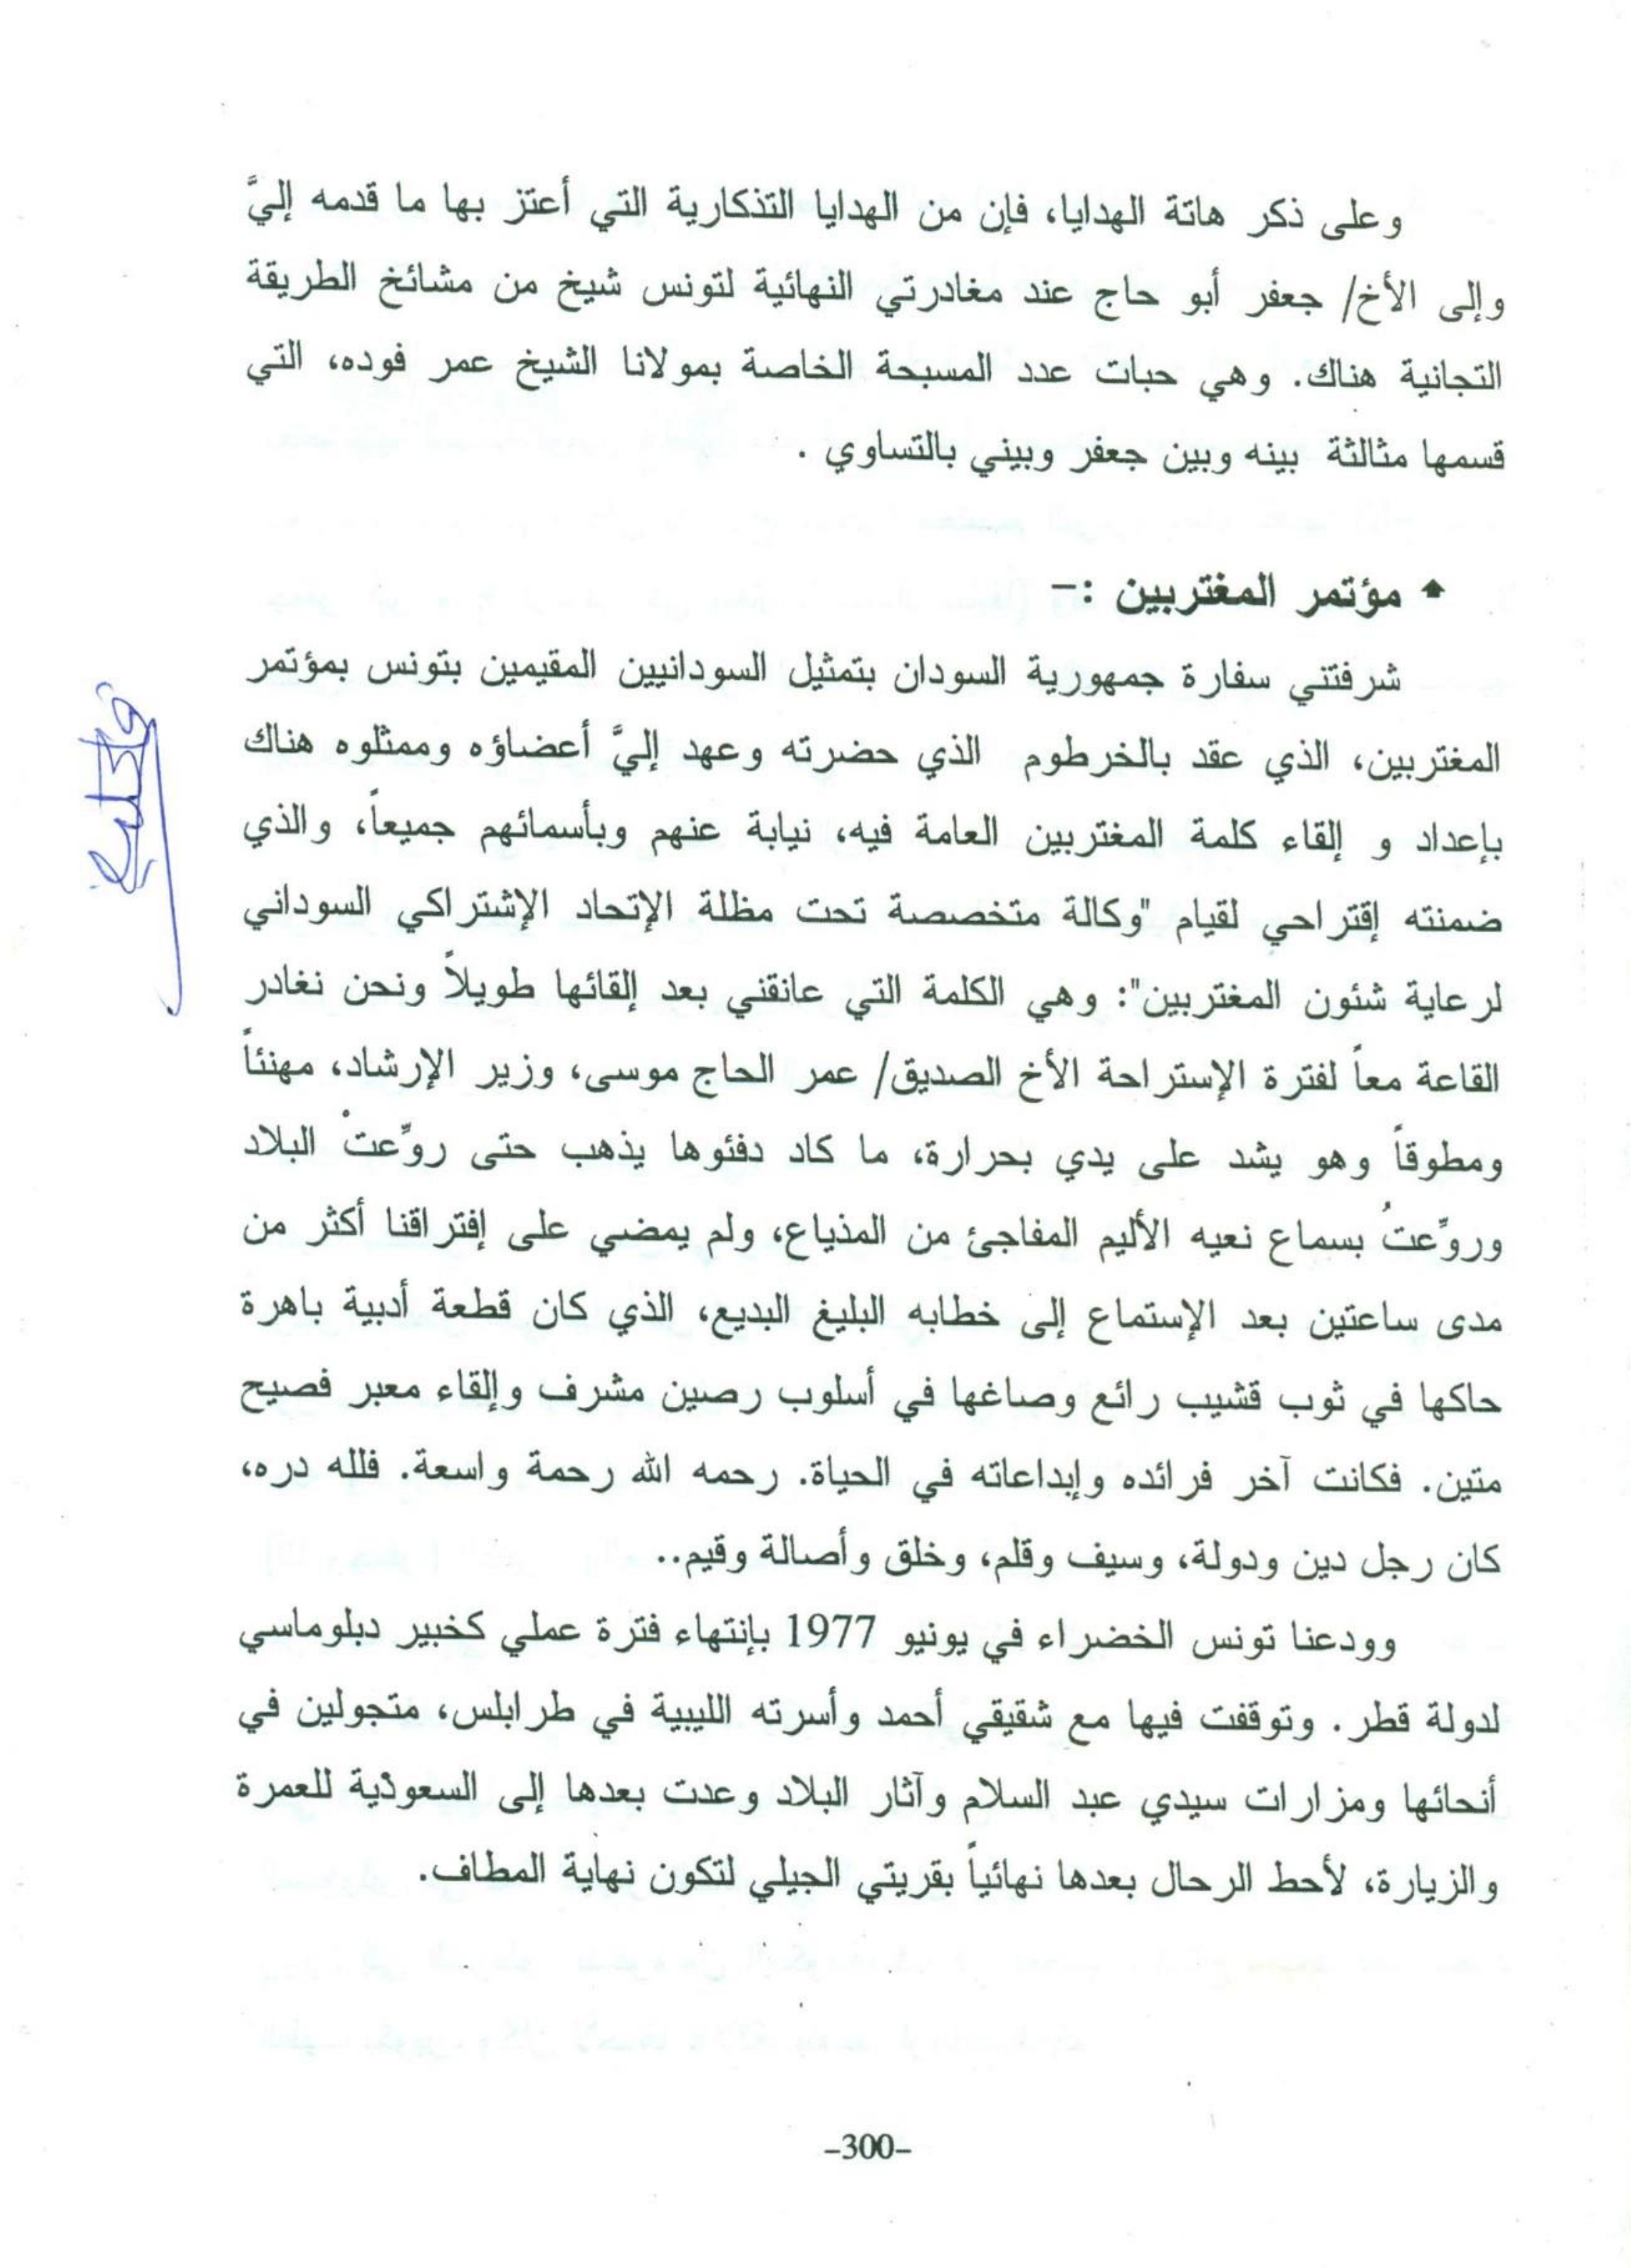 وعلى ذكر هاتة الهدايا، فإن من الهدايا التذكارية التي أعتز بها ما قدمه إليَّ
وإلى الأخ/ جعفر أبو حاج عند مغادرتي النهائية لتونس شيخ من مشائخ الطريقة
التجانية هناك. وهي حبات عدد المسبحة الخاصة بمولانا الشيخ عمر فوده، التي
قسمها مثالثة بينه وبين جعفر وبيني بالتساوي .
♠ مؤتمر المغتربين :-
شرفتني سفارة جمهورية السودان بتمثيل السودانيين المقيمين بتونس بمؤتمر
المغتربين، الذي عقد بالخرطوم الذي حضرته وعهد إليَّ أعضاؤه وممثلوه هناك
بإعداد و إلقاء كلمة المغتربين العامة فيه، نيابة عنهم وبأسمائهم جميعاً، والذي
ضمنته إقتراحي لقيام "وكالة متخصصة تحت مظلة الإتحاد الإشتراكي السوداني
لرعاية شئون المغتربين": وهي الكلمة التي عانقني بعد إلقائها طويلاً ونحن نغادر
القاعة معاً لفترة الإستراحة الأخ الصديق/ عمر الحاج موسى، وزير الإرشاد، مهنئاً
ومطوقاً وهو يشد على يدي بحرارة، ما كاد دفئوها يذهب حتى روِّعتْ البلاد
وروِّعتُ بسماع نعيه الأليم المفاجئ من المذياع، ولم يمضي على إفتراقنا أكثر من
مدى ساعتين بعد الإستماع إلى خطابه البليغ البديع، الذي كان قطعة أدبية باهرة
حاكها في ثوب قشيب رائع وصاغها في أسلوب رصين مشرف وإلقاء معبر فصيح
متين. فكانت آخر فرائده وإبداعاته في الحياة. رحمه الله رحمة واسعة. فلله دره،
كان رجل دين ودولة، وسيف وقلم، وخلق وأصالة وقيم..
وودعنا تونس الخضراء في يونيو 1977 بإنتهاء فترة عملي كخبير دبلوماسي
لدولة قطر. وتوقفت فيها مع شقيقي أحمد وأسرته الليبية في طرابلس، متجولين في
أنحائها ومزارات سيدي عبد السلام وآثار البلاد وعدت بعدها إلى السعودية للعمرة
والزيارة، لأحط الرحال بعدها نهائياً بقريتي الجيلي لتكون نهاية المطاف.
-300-